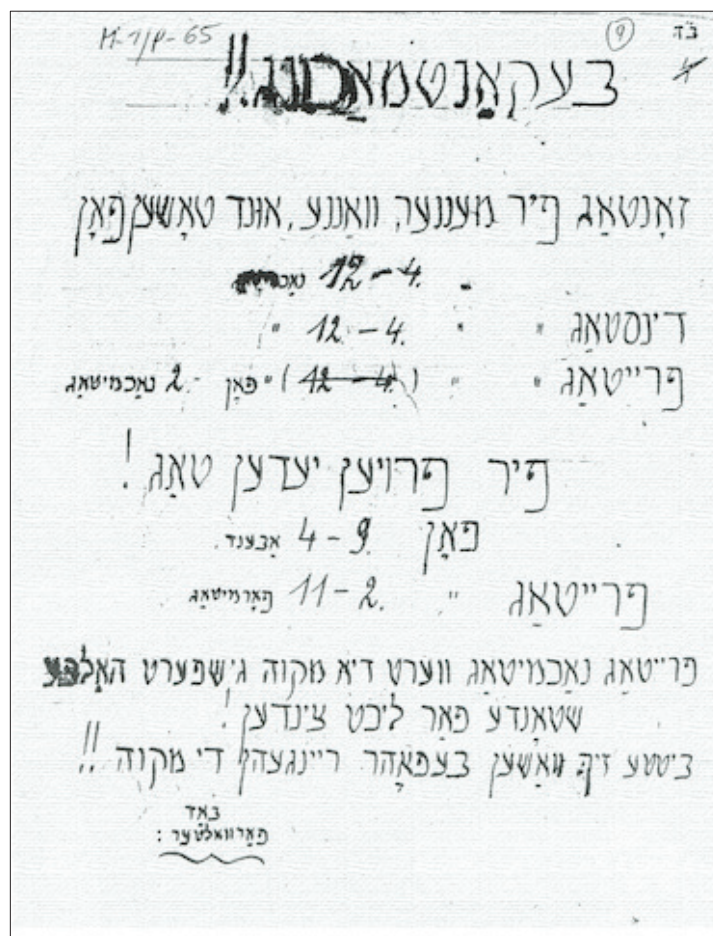 M-1/P-65 (9) בה
בעקאַנטמאַכונג!!
זאָנטאַג פיר מעננער, וואַננע, אונד טאָשען פאָן
12-4. נאַכ
דינסטאַג " " 12-4. "
פרייטאַג " " (12-4.) " פאָן 2 נאַכמיטאַג
פיר פרויען יעדען טאַג!
פאָן 4-9. אַבענד.
פרייטאַג " 11-2. פאָרמיטאַג
פרייטאַג נאַכמיטאַג ווערט דיא מקוה גישפערט האַלבע
שטאָנדע פאַר ליכט צינדען!
ביטטע זיך וואַשען בעפאָהר ריינגעהן די מקוה!!
באַד
פאַרוואַלטער: